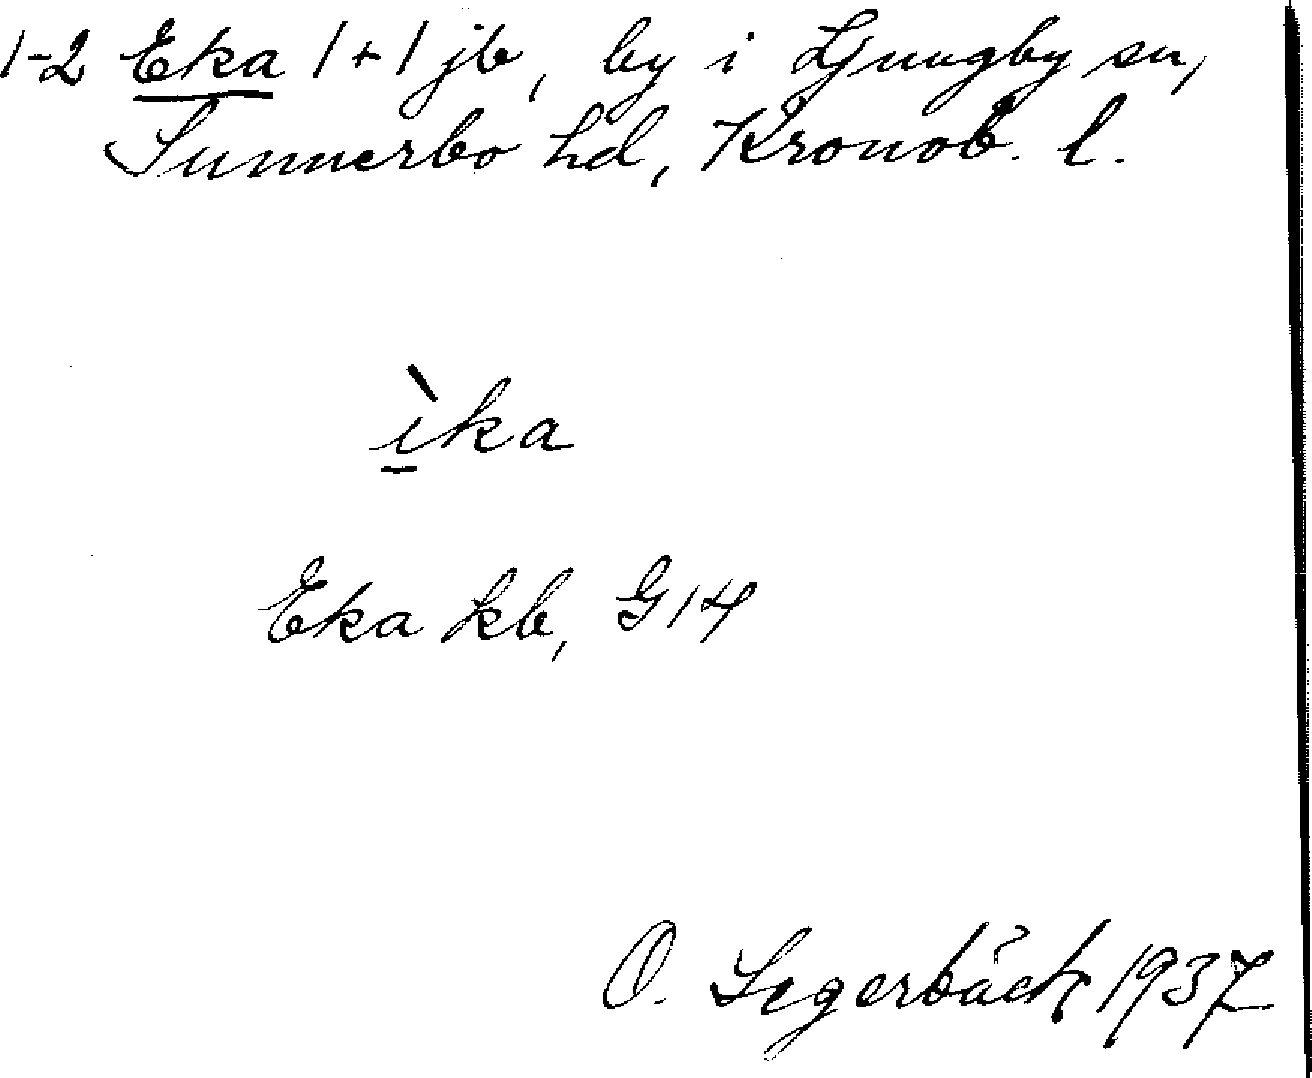 1-2 Eka 1+1 jb, by i Ljungby sn,
Sunnerbo hd, Kronob. l.
ìka
Eka kb, G14
O. Segerbäck 1937